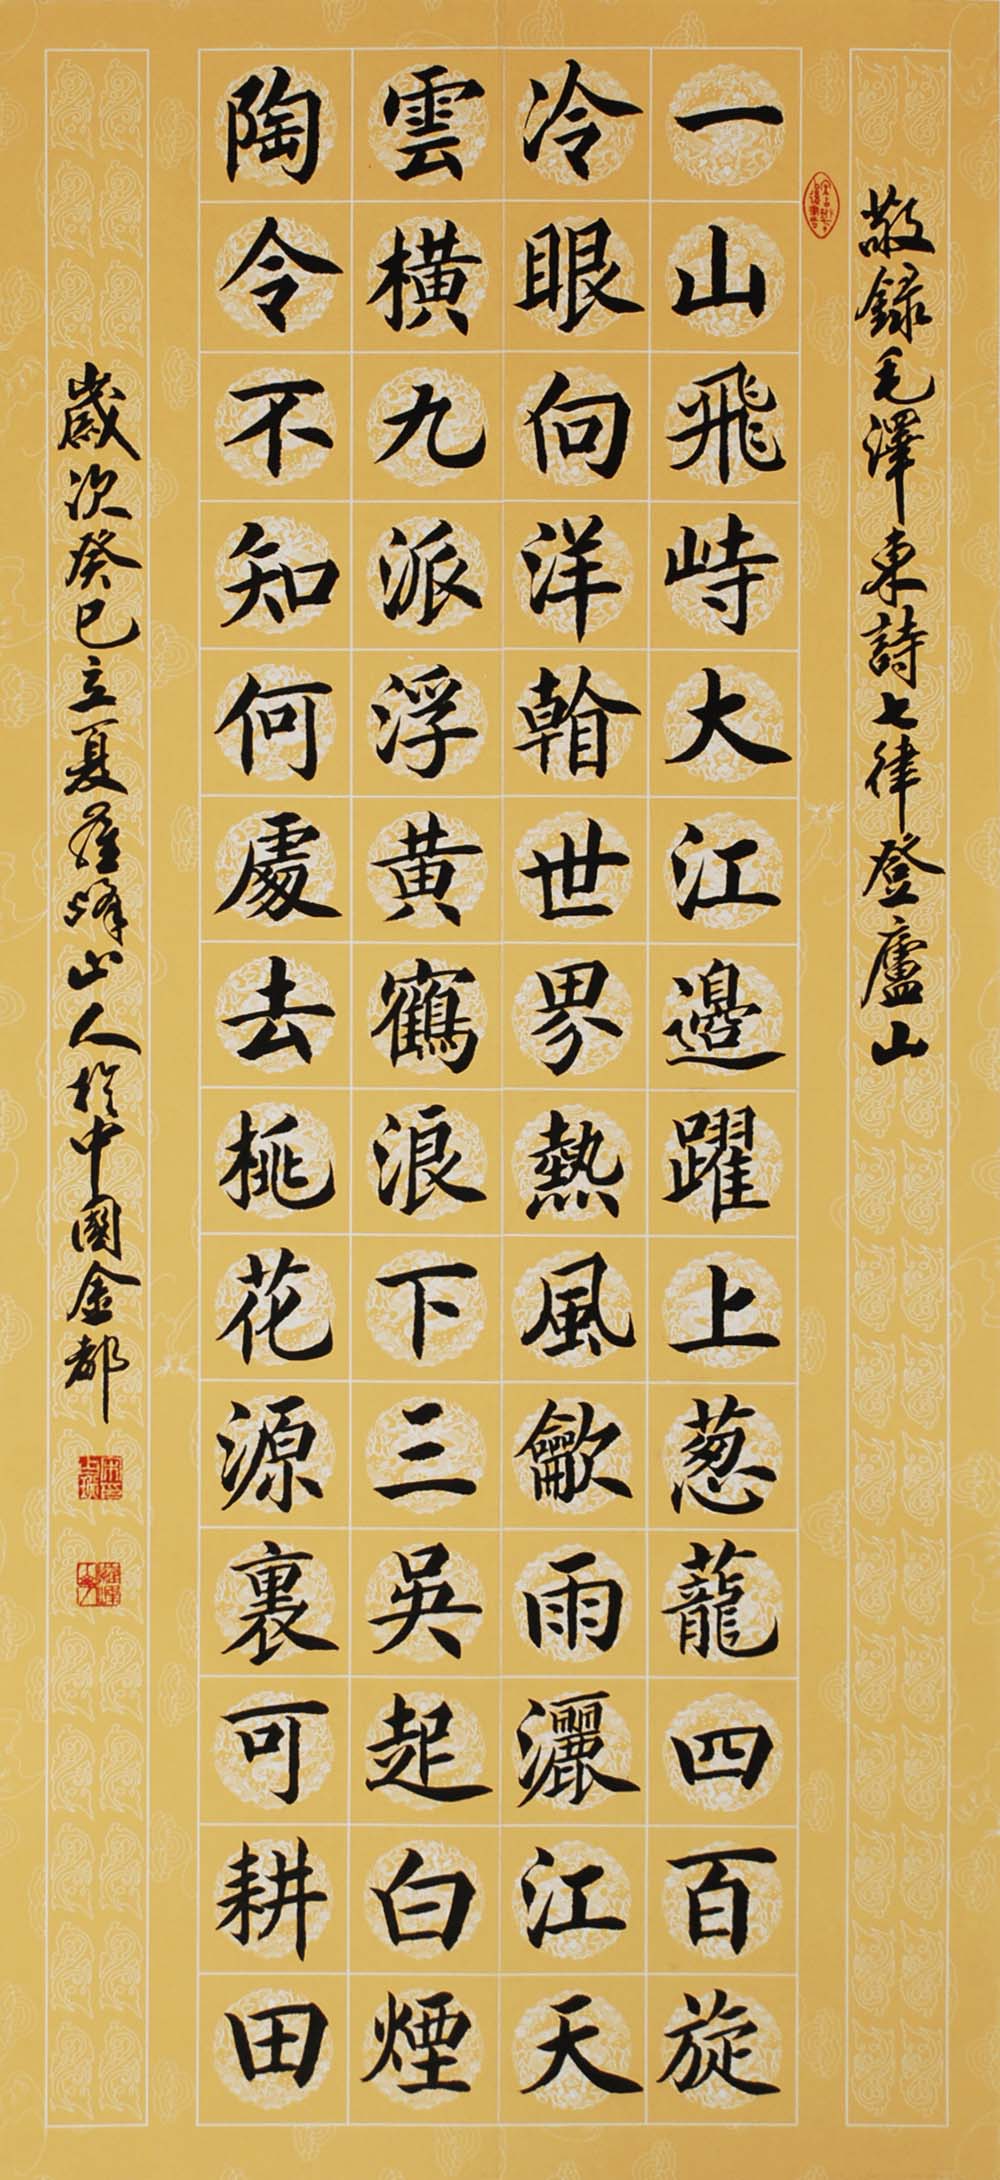 敬錄毛澤東詩七律登廬山
一山飛峙大江邊躍上葱蘢四百旋
冷眼向洋看世界熱風龡雨灑江天
雲橫九派浮黄鶴浪下三吳起白煙
陶令不知何處去桃花源裏可耕田
歲次癸巳立夏峰山人於中國金都